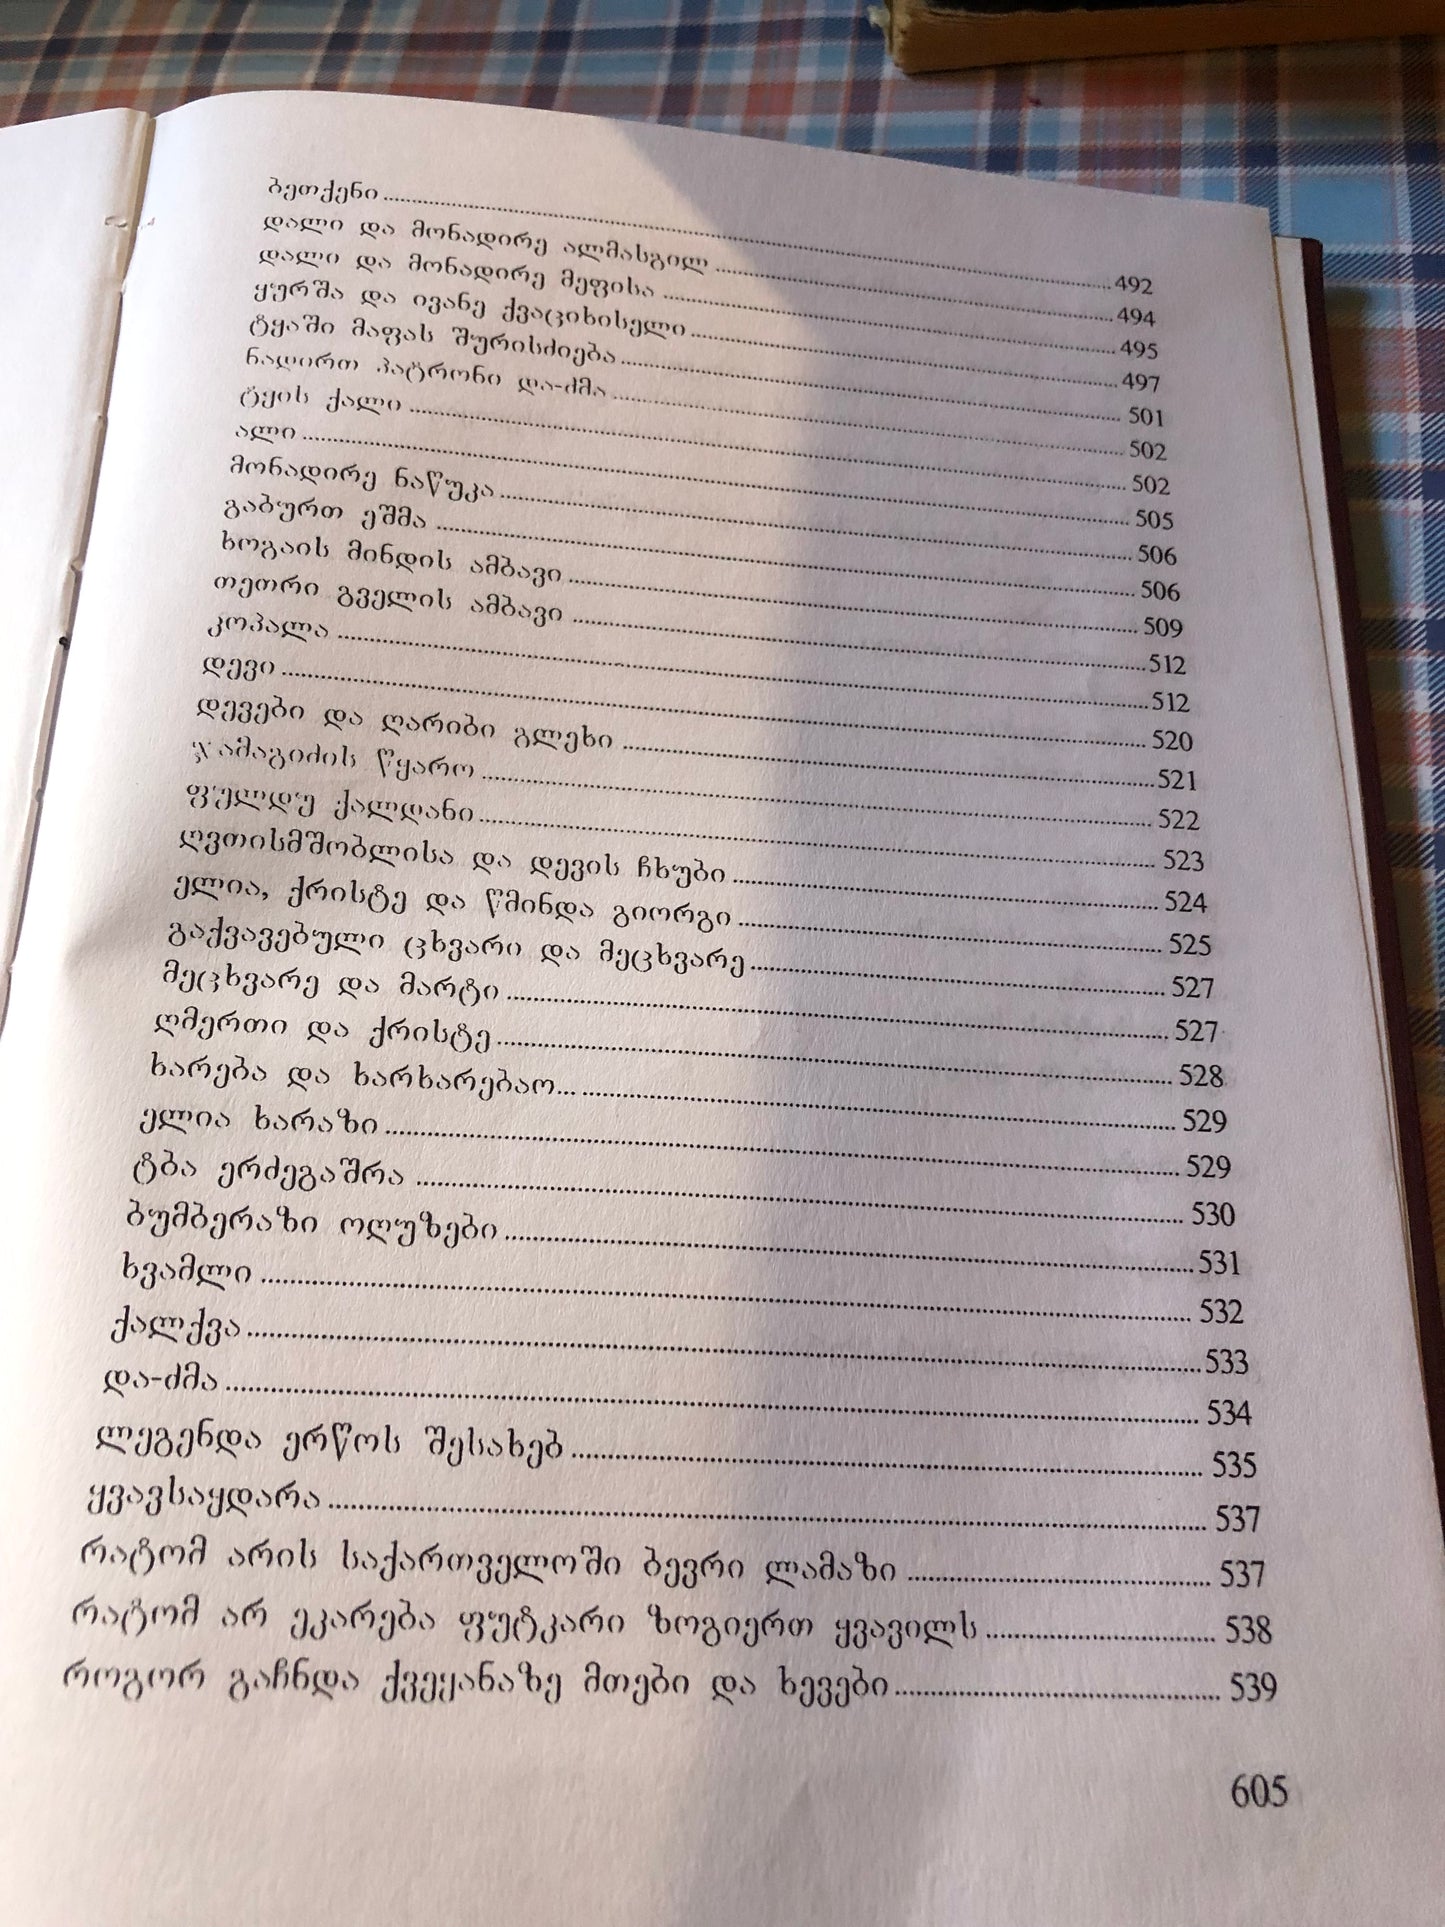 ბეთქენი 492
დალი და მონადირე ალმასგილ 494
დალი და მონადირე მეფისა 495
ყურშა და ივანე ქვაციხისელი 497
ტყაში მაფას შურისძიება 501
ნადირთ პატრონი და-ძმა 502
ტყის ქალი 502
ალი 505
მონადირე ნაწუკა 506
გაბურთ ეშმა 506
ხოგაის მინდის ამბავი 509
თეთრი გველის ამბავი 512
კოპალა 512
დევი 520
დევები და ღარიბი გლეხი 521
ჯამაგიძის წყარო 522
ფულდუ ქალდანი 523
ღვთისმშობლისა და დევის ჩხუბი 524
ელია, ქრისტე და წმინდა გიორგი 525
გაქვავებული ცხვარი და მეცხვარე 527
მეცხვარე და მარტი 527
ღმერთი და ქრისტე 528
ხარება და ხარხარებაო... 529
ელია ხარაზი 529
ტბა ერძეგაშრა 530
ბუმბერაზი ოღუზები 531
ხვამლი 532
ქალქვა 533
და-ძმა 534
ლეგენდა ერწოს შესახებ 535
ყვავსაყდარა 537
რატომ არის საქართველოში ბევრი ლამაზი 537
რატომ არ ეკარება ფუტკარი ზოგიერთ ყვავილს 538
როგორ გაჩნდა ქვეყანაზე მთები და ხევები 539
605